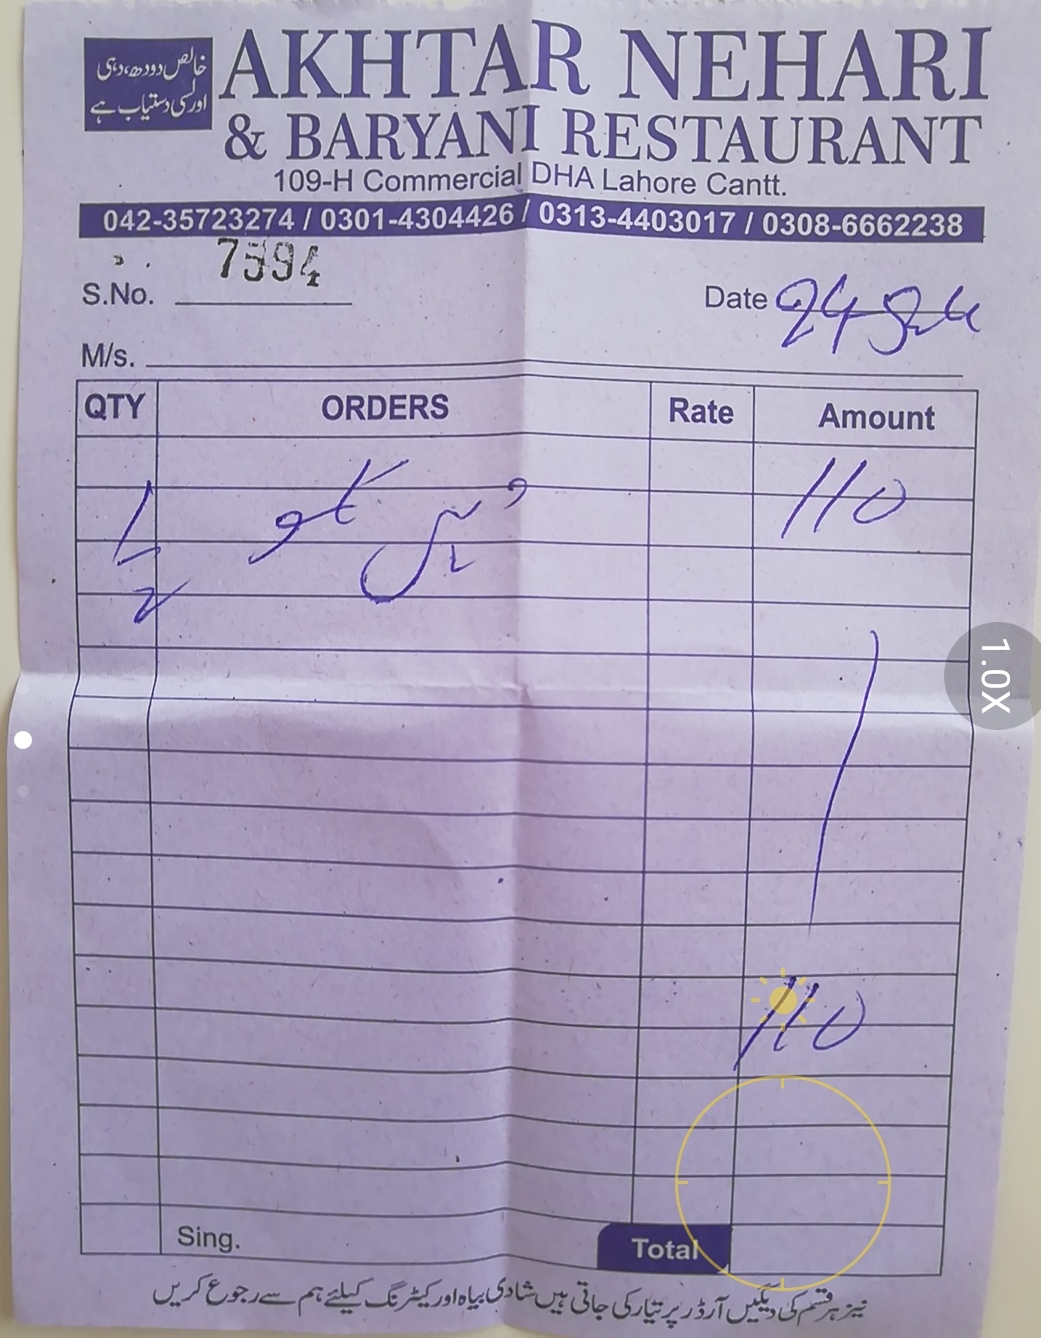 خالص دودھ، دہی
اور لسی دستیاب ہے
AKHTAR NEHARI
& BARYANI RESTAURANT
109-H Commercial DHA Lahore Cantt.
042-35723274 / 0301-4304426 / 0313-4403017 / 0308-6662238
S.No. 7594
Date
M/s.
QTY ORDERS Rate Amount
1/2 110
110
Sing. Total
نیز ہر قسم کی دیگیں آرڈر پر تیار کی جاتی ہیں شادی بیاہ اور کیٹرنگ کیلئے ہم سے رجوع کریں
1.0X